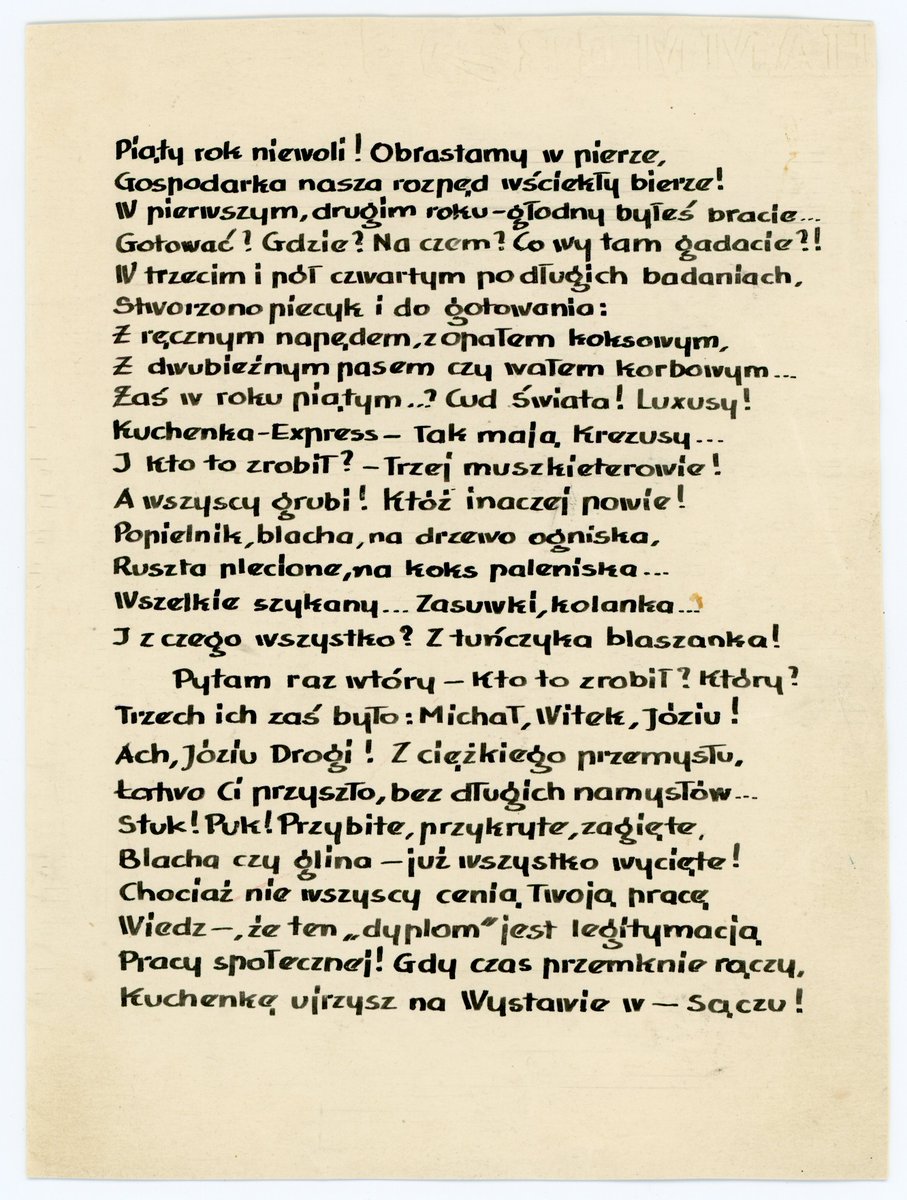 Piąty rok niewoli! Obrastamy w pierze,
Gospodarka nasza rozpęd wściekły bierze!
W pierwszym, drugim roku - głodny byłeś bracie...
Gotować? Gdzie? Na czem? Co wy tam gadacie?!
W trzecim i pół czwartym po długich badaniach,
Stworzono piecyk i do gotowania:
Z ręcznym napędem, z opałem koksowym,
Z dwubieżnym pasem czy wałem korbowym...
Zaś w roku piątym..? Cud świata! Luxusy!
Kuchenka-Express - Tak mają Krezusy...
I kto to zrobił? - Trzej muszkieterowie!
A wszyscy grubi! Któż inaczej powie!
Popielnik, blacha, na drzewo ogniska,
Ruszta plecione, na koks paleniska...
Wszelkie szykany... Zasuwki, kolanka...
I z czego wszystko? Z tuńczyka blaszanka!
Pytam raz wtóry - Kto to zrobił? Który?
Trzech ich zaś było: Michał, Witek, Józiu!
Ach, Józiu Drogi! Z ciężkiego przemysłu,
Łatwo Ci przyszło, bez długich namysłów...
Stuk! Puk! Przybite, przykryte, zagięte,
Blacha czy glina - już wszystko wycięte!
Chociaż nie wszyscy cenią Twoją pracę
Wiedz -, że ten „dyplom" jest legitymacją
Pracy społecznej! Gdy czas przemknie rączy,
Kuchenkę ujrzysz na Wystawie w - Sączu!